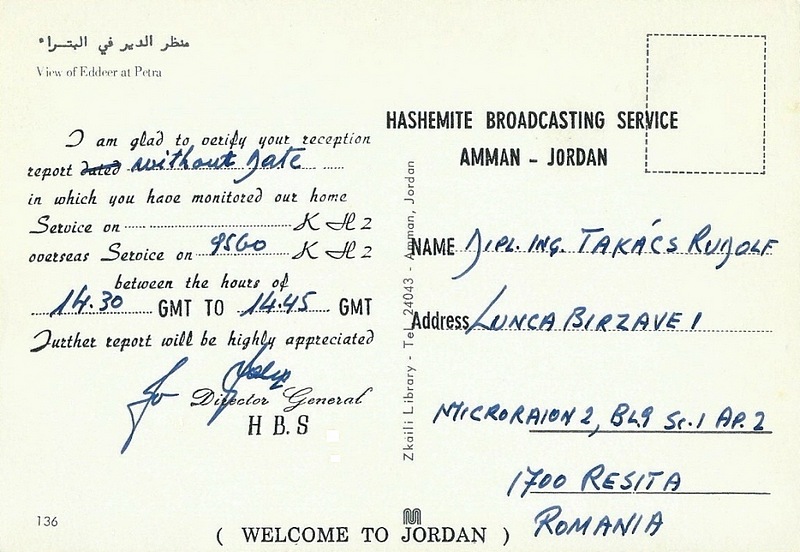 منظر الدير في البتراء
View of Eddeer at Petra
I am glad to verify your reception
report dated without date
in which you have monitored our home
Service on KHz
overseas Service on 9560 KHz
between the hours of
14.30 GMT TO 14.45 GMT
Further report will be highly appreciated
Director General
H B.S
136
Zkaili Library - Tel. 24043 - Amman, Jordan
HASHEMITE BROADCASTING SERVICE
AMMAN - JORDAN
NAME DIPL. ING. TAKÁCS RUDOLF
Address LUNCA BIRZAVEI
MICRORAION 2, BL9 Sc.1 AP.2
1700 RESITA
ROMANIA
( WELCOME TO JORDAN )